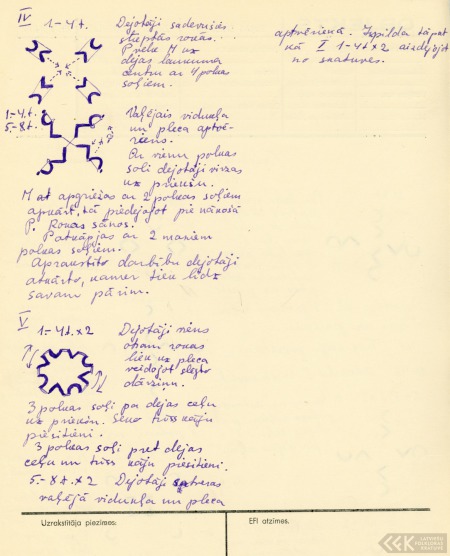 IV 1-4t. Dejotāji sadevušies
stieptās rokās.
Priekš M uz
dejas laukuma
centru ar 4 polkas
soļiem.
1.-4.t. Vaļējais vidukļa
5.-8t. un pleca aptvē-
riens.
Ar vienu polkas
soli dejotāji virzas
uz priekšu.
M at apgriežas ar 2 polkas soļiem
apkārt, tā piedejojot pie nākošā
P. Rokas sānos.
Patkāpjas ar 2 maniem
polkas soļiem.
Aprakstīto darbību dejotāji
atkārto, kamēr tiek līdz
savam pārim.
V 1-4t. x2 Dejotāji viens
otram rokas
liek uz pleca
veidojot slēgto
dārziņu.
3 polkas soļi pa dejas ceļu
uz priekšu. Seko trīss kāju
piesitieni.
3 polkas soļi pret dejas
ceļu un trīss kāju piesitieni.
5.-8t.x2 Dejotāji satveras
vaļējā vidukļa un pleca
aptvērienā. Izpilda tāpat
kā I 1-4t x 2 aizdejojot
no skatuves.
Uzrakstītāja piezīmes:
EFI atzīmes.
LATVIEŠU
FOLKLORAS
KRĀTUVE